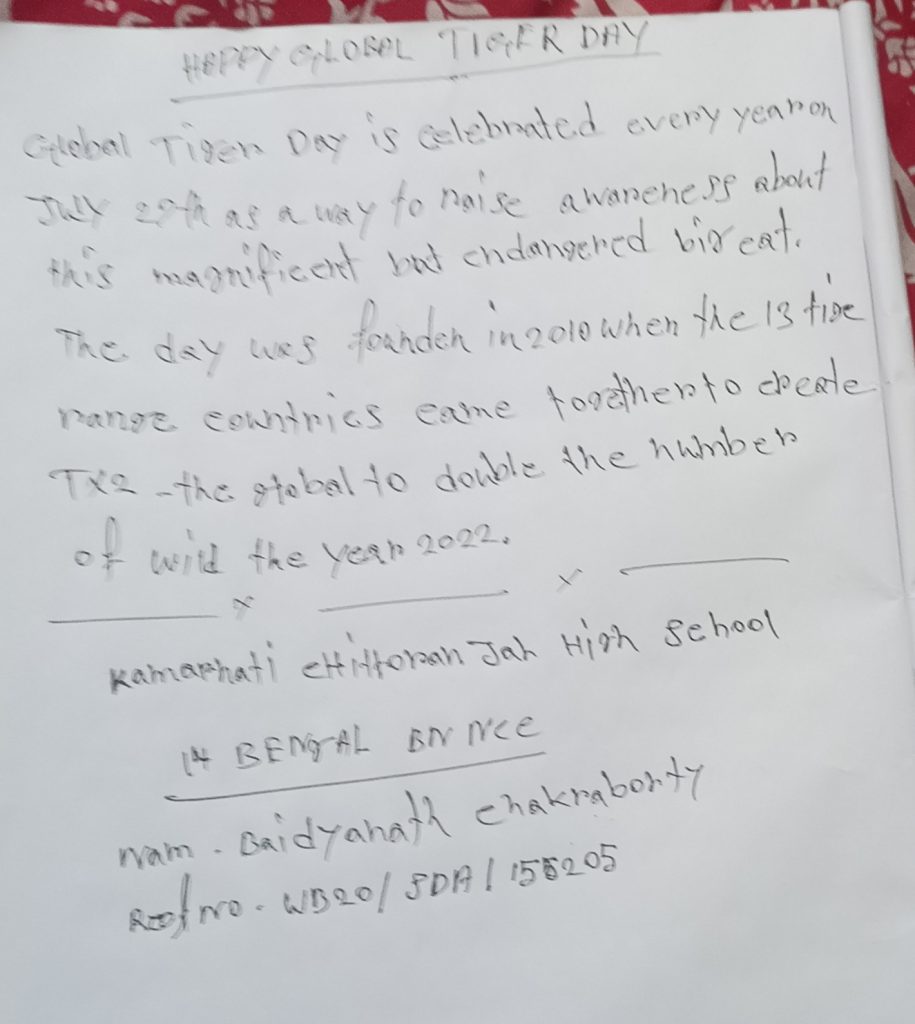 HAPPY GLOBAL TIGER DAY
Global Tiger Day is celebrated every year on
July 29th as a way to raise awareness about
this magnificent but endangered big cat.
The day was founder in 2010 when the 13 tige
range countries came together to create
TX2 - the global to double the number
of wild the year 2022.
x x
Kamarhati Chittoran Jan High School
14 BENGAL BN NCC
Nam. Baidyanath Chakraborty
No. WB20/SDA/155205